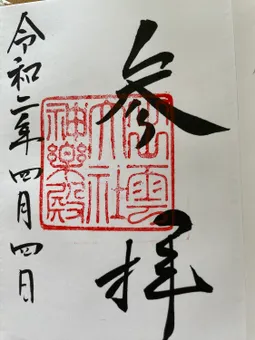 参拝
出雲大社神楽殿
令和二年四月四日